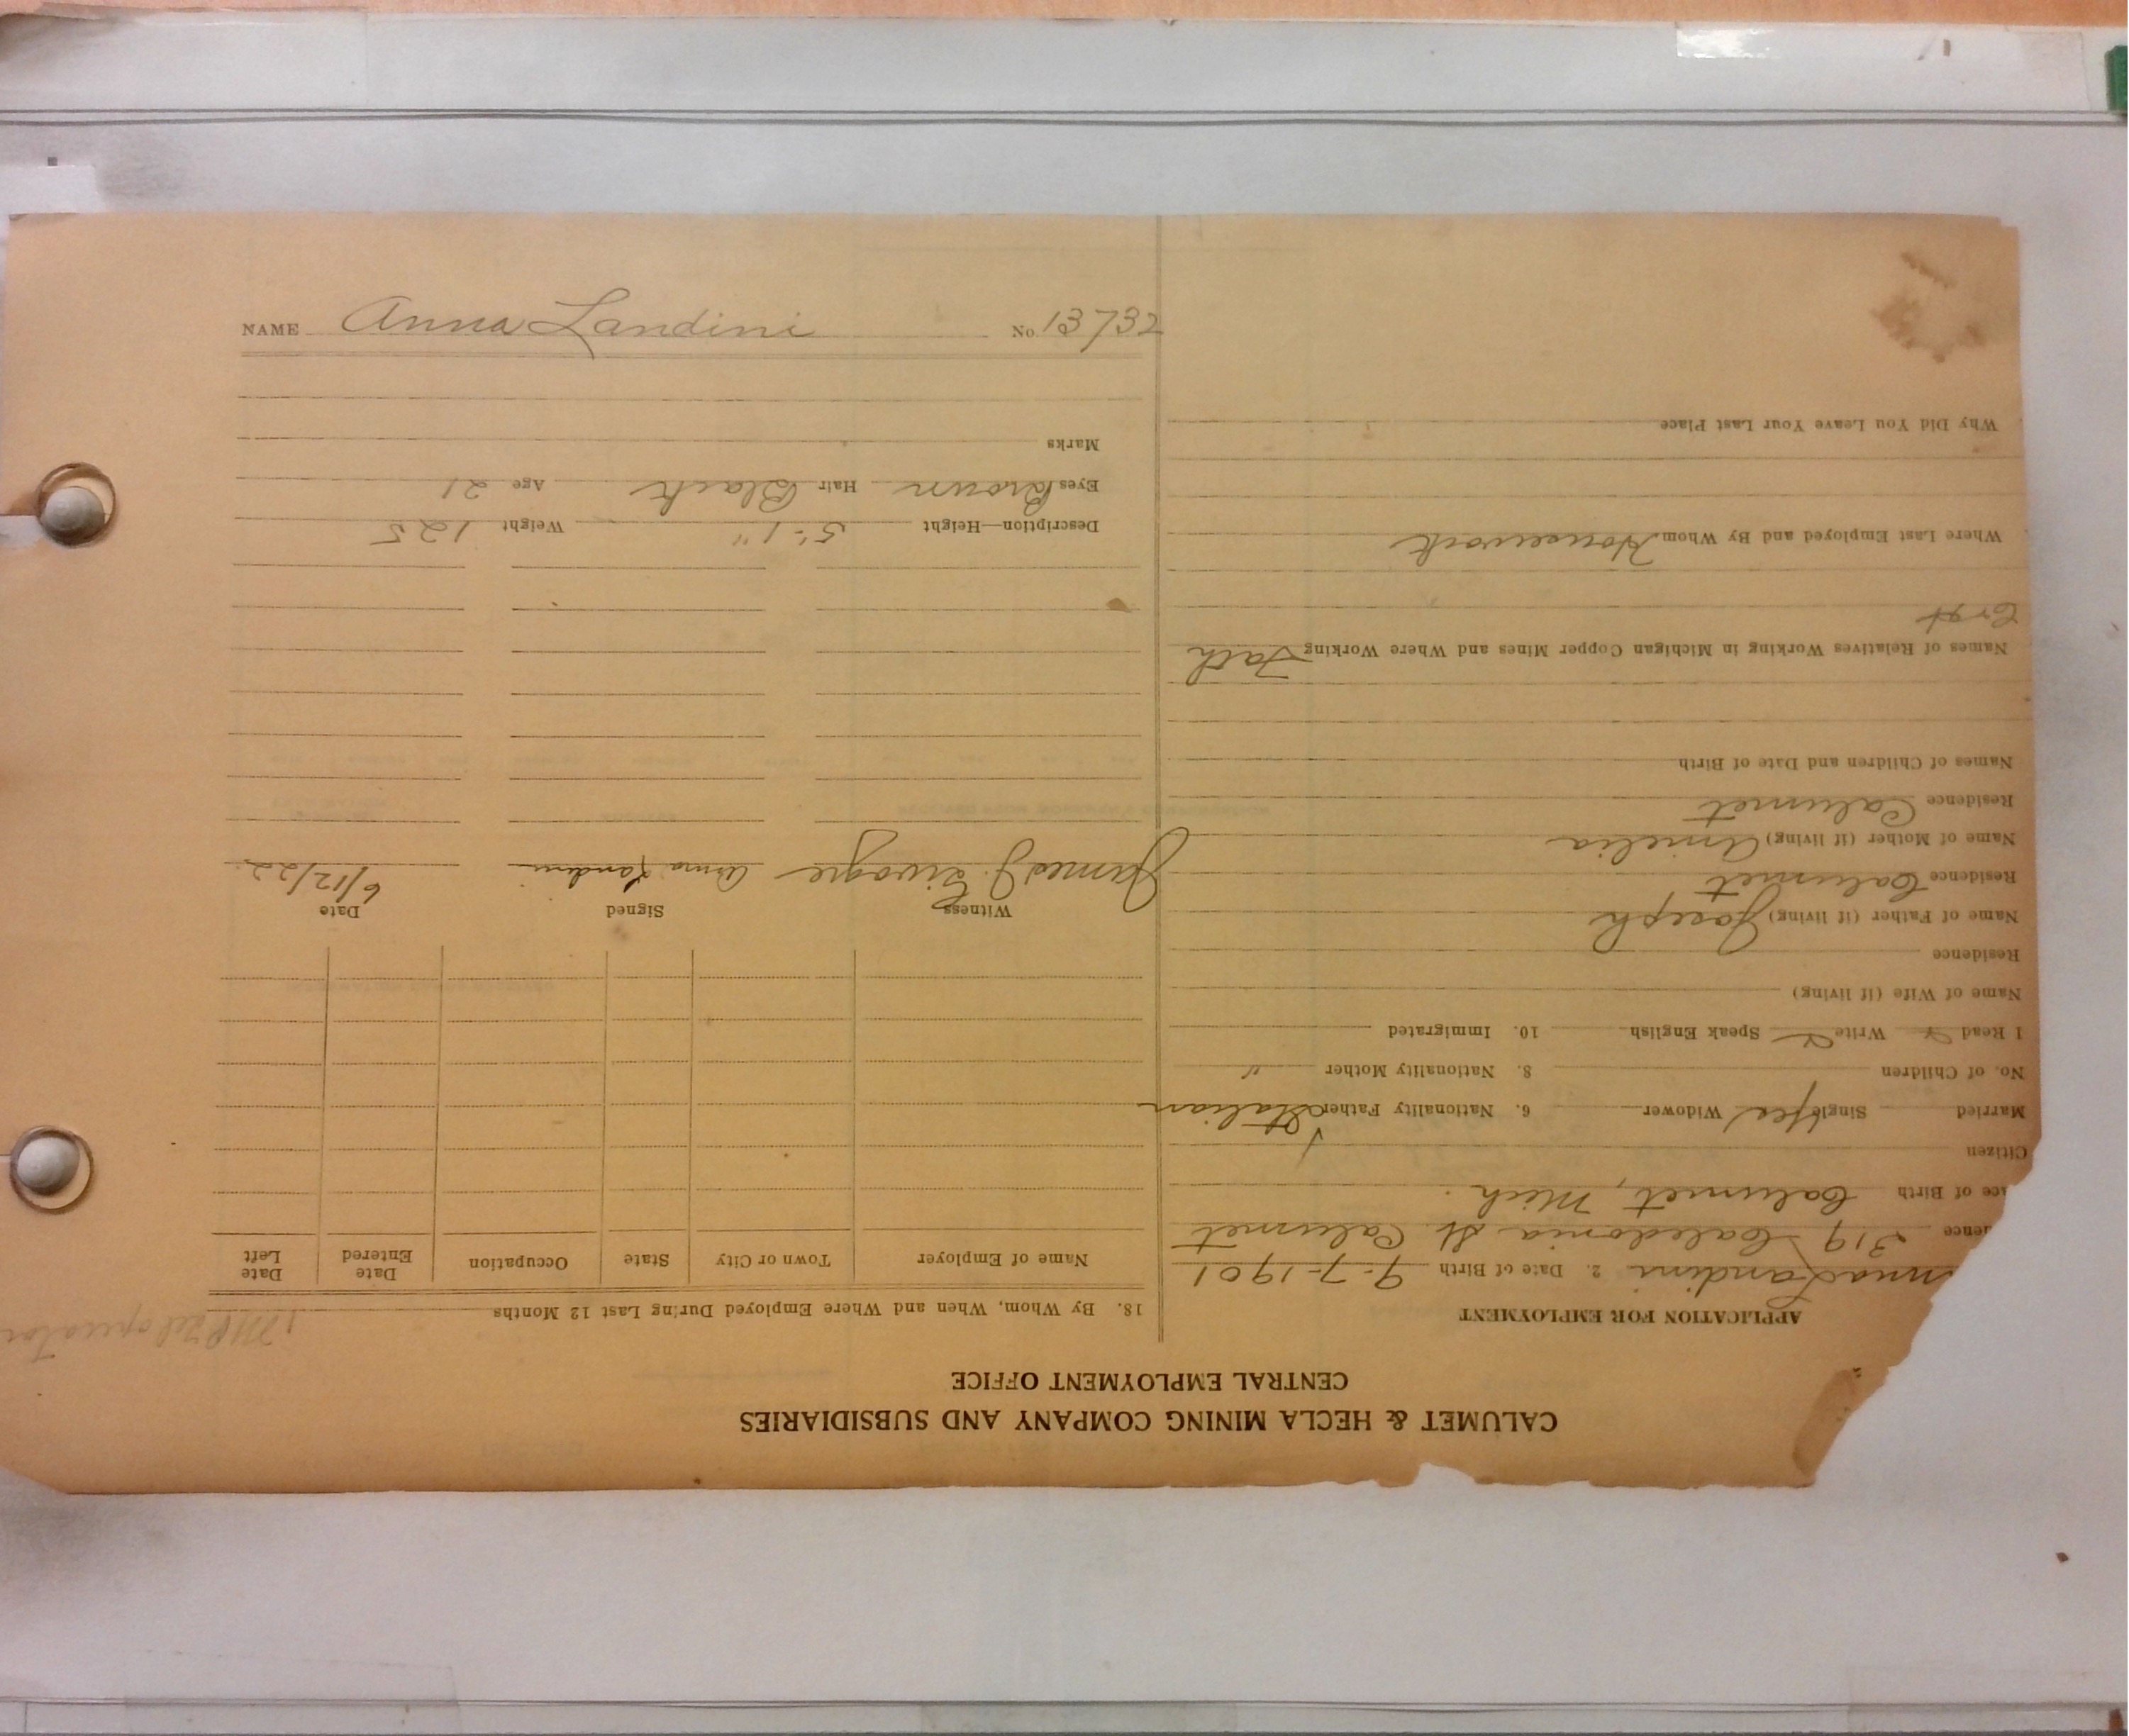 CALUMET & HECLA MINING COMPANY AND SUBSIDIARIES
CENTRAL EMPLOYMENT OFFICE
APPLICATION FOR EMPLOYMENT
nna Landini 2. Date of Birth 9-7-1901
dence 319 Caledonia St. Calumet
ace of Birth Calumet, Mich.
Citizen
Married Single Yes Widower 6. Nationality Father Italian
No. of Children 8. Nationality Mother "
I Read Write Speak English 10. Immigrated
Name of Wife (if living)
Residence
Name of Father (if living) Joseph
Residence Calumet
Name of Mother (if living) Amelia
Residence Calumet
Names of Children and Date of Birth
Names of Relatives Working in Michigan Copper Mines and Where Working Fath
Where Last Employed and By Whom Housework
Why Did You Leave Your Last Place
18. By Whom, When and Where Employed During Last 12 Months
Name of Employer Town or City State Occupation Date Entered Date Left
Witness Signed Date
James J. Anna Landini 6/12/22.
Description—Height 5'-1" Weight 125
Eyes Brown Hair Black Age 21
Marks
NAME Anna Landini No. 13732